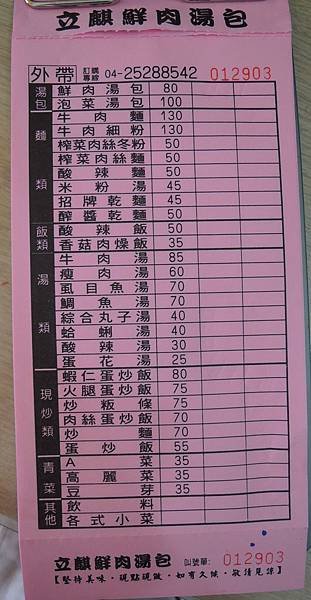 立麒鮮肉湯包
外帶 訂購專線 04-25288542 012903
湯包 鮮肉湯包 80
泡菜湯包 100
麵類 牛肉麵 130
牛肉細粉 130
榨菜肉絲冬粉 50
榨菜肉絲麵 50
酸辣麵 50
米粉湯 45
招牌乾麵 45
醡醬乾麵 50
飯類 酸辣飯 50
香菇肉燥飯 35
湯類 牛肉湯 85
瘦肉湯 60
虱目魚湯 70
鯛魚湯 70
綜合丸子湯 40
蛤蜊湯 40
酸辣湯 30
蛋花湯 25
現炒類 蝦仁蛋炒飯 80
火腿蛋炒飯 75
炒粄條 75
肉絲蛋炒飯 70
炒麵 70
蛋炒飯 55
青菜 A菜 35
高麗菜 35
豆芽 35
其他 飲料
各式小菜
立麒鮮肉湯包 叫號單: 012903
【堅持美味‧現點現做‧如有久候‧敬請見諒】